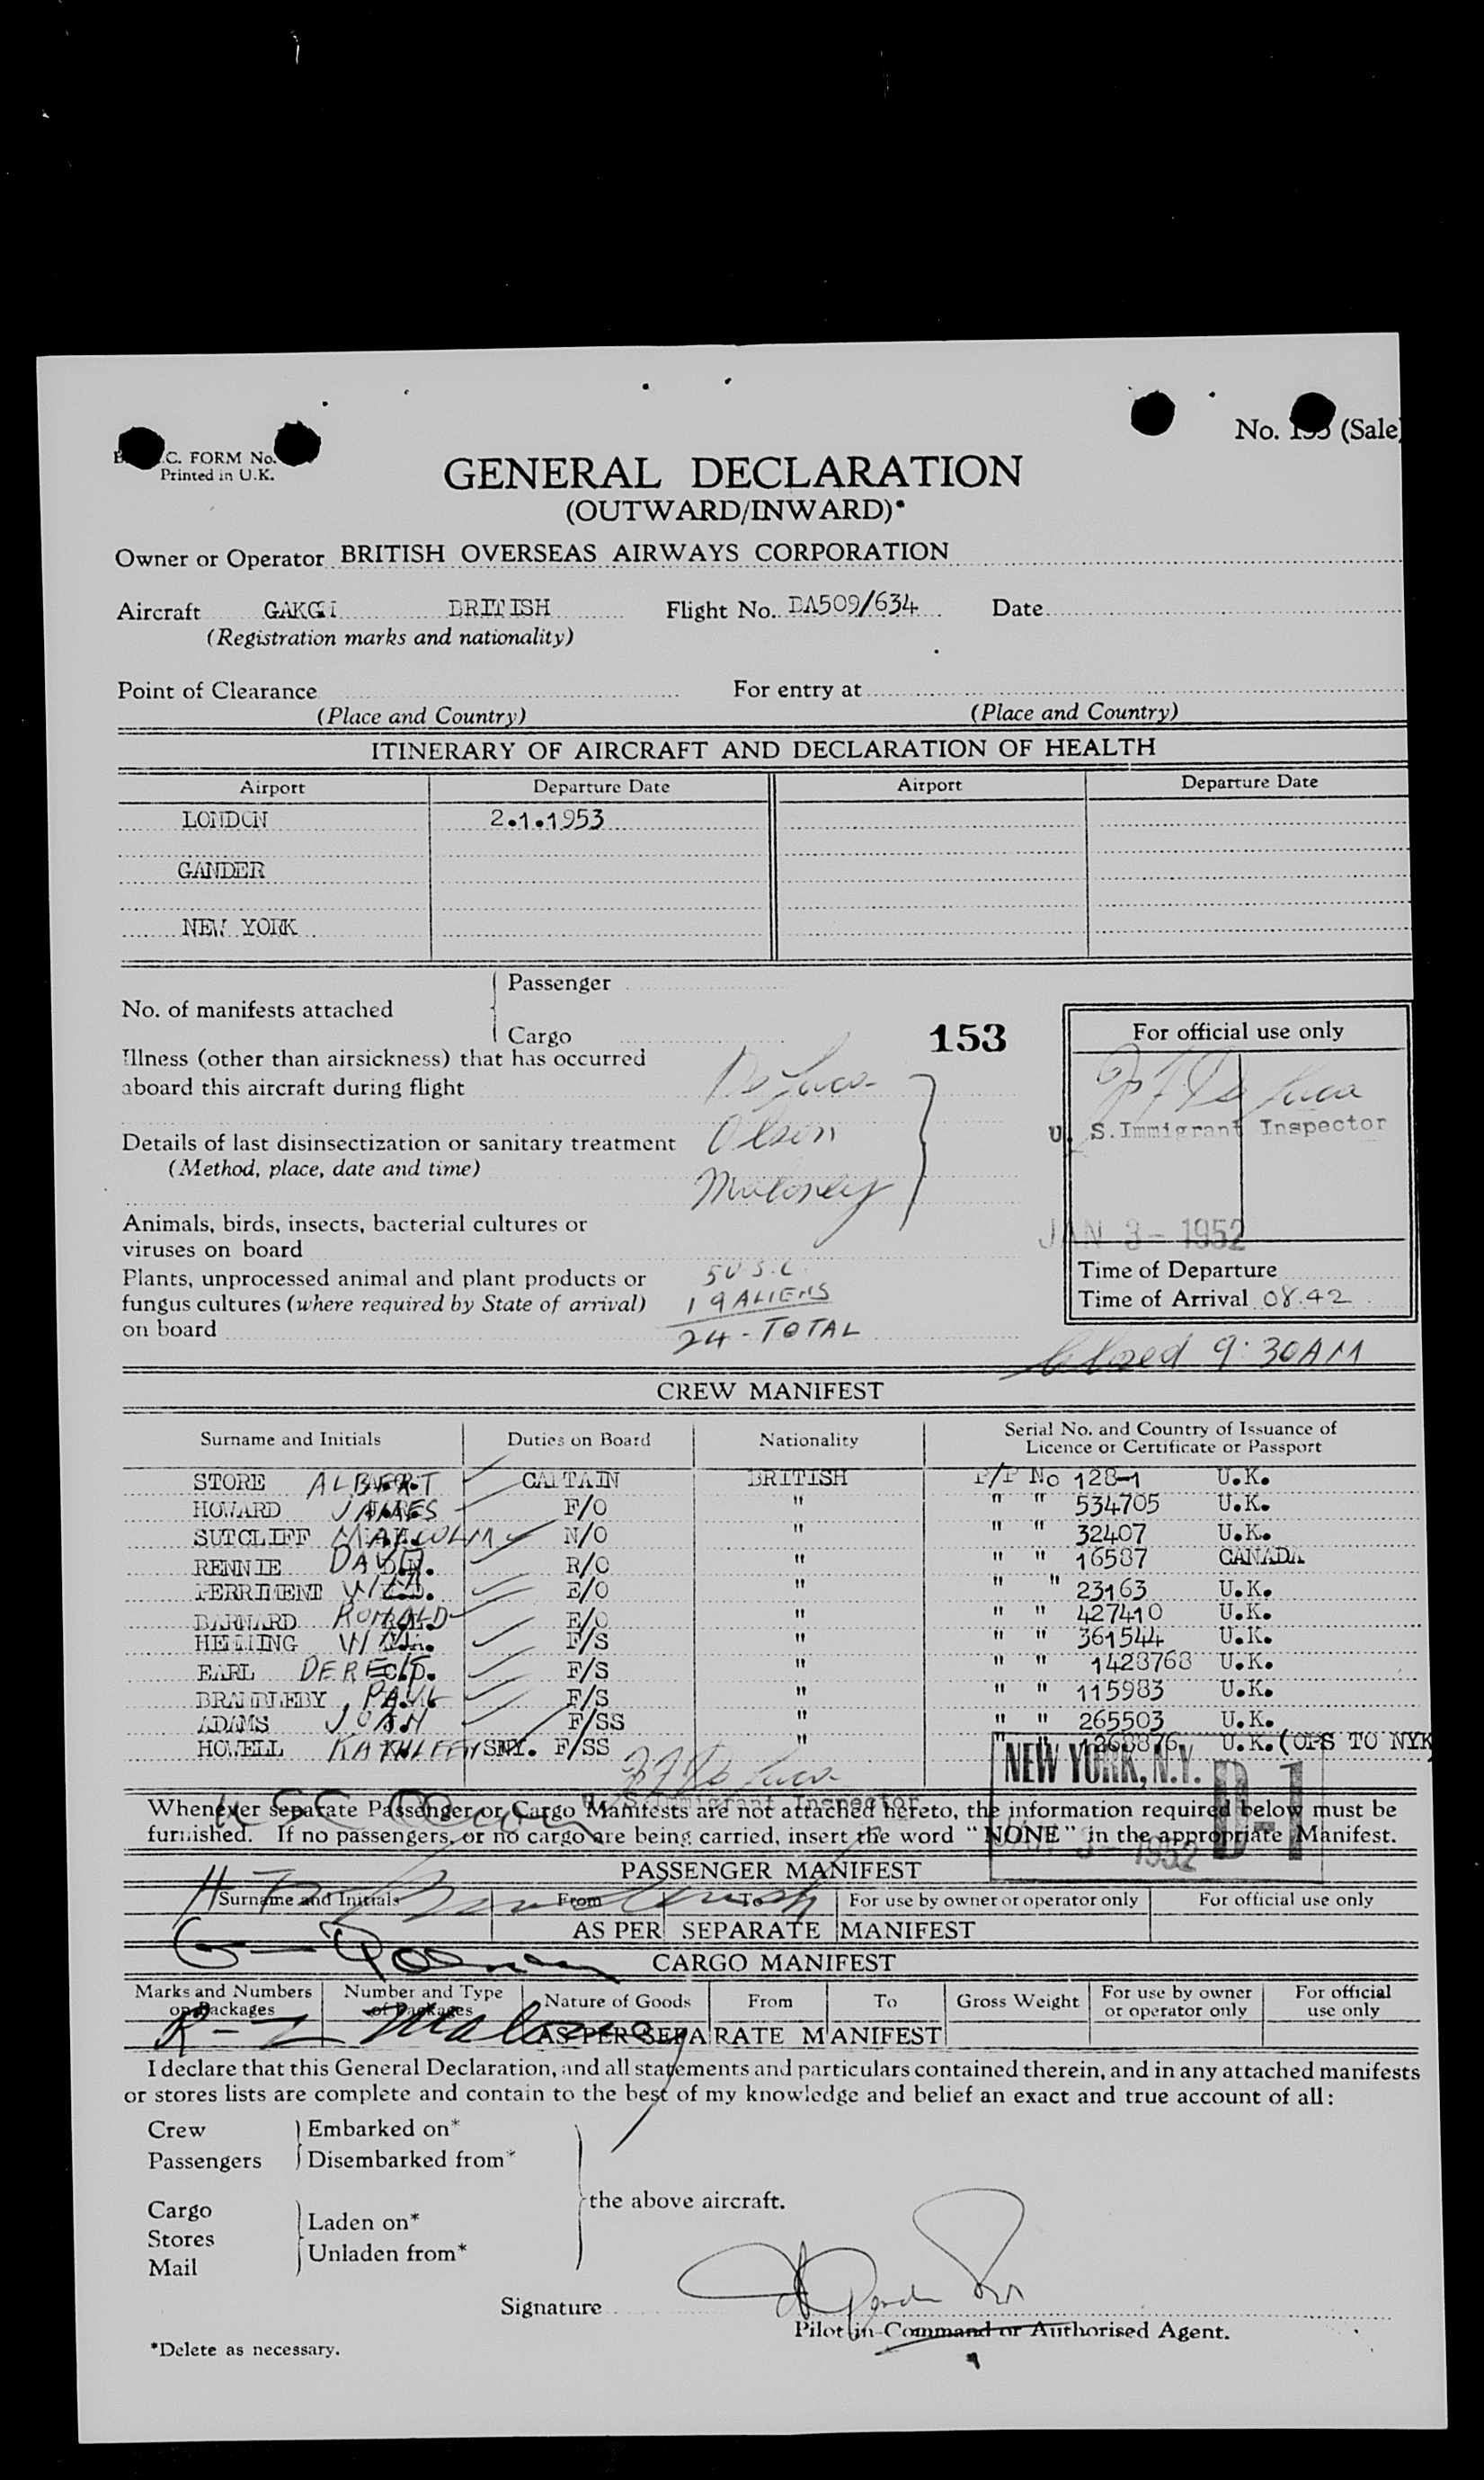 C. FORM No.
Printed in U.K.
No. (Sale)
GENERAL DECLARATION
(OUTWARD/INWARD)*
Owner or Operator BRITISH OVERSEAS AIRWAYS CORPORATION
Aircraft BRITISH Flight No. BA509/634 Date
(Registration marks and nationality)
Point of Clearance For entry at
(Place and Country) (Place and Country)
ITINERARY OF AIRCRAFT AND DECLARATION OF HEALTH
Airport Departure Date Airport Departure Date
LONDON 2.1.1953
GANDER
NEW YORK
Passenger
No. of manifests attached
Cargo
153
For official use only
Illness (other than airsickness) that has occurred
aboard this aircraft during flight
De Luca
Olson
Maloney
De Luca
U. S. Immigrant Inspector
Details of last disinsectization or sanitary treatment
(Method, place, date and time)
Animals, birds, insects, bacterial cultures or
viruses on board
JAN 3 - 1952
Plants, unprocessed animal and plant products or
fungus cultures (where required by State of arrival)
on board
5 U.S.C.
19 ALIENS
24 - TOTAL
Time of Departure
Time of Arrival 08.42
Closed 9:30AM
CREW MANIFEST
Surname and Initials Duties on Board Nationality Serial No. and Country of Issuance of
Licence or Certificate or Passport
STORE ALBERT CAPTAIN BRITISH P/P No 128-1 U.K.
HOWARD JAMES F/O " " " 534705 U.K.
SUTCLIFF MALCOLM N/O " " " 32407 U.K.
RENNIE DAVID. R/O " " " 16587 CANADA
PERRIMENT E/O " " " 23163 U.K.
BARNARD RONALD E/O " " " 427410 U.K.
HEMMING WM. F/S " " " 361544 U.K.
EARL DERECK F/S " " " 1428768 U.K.
BRANDLEBY, PAUL F/S " " " 115983 U.K.
ADAMS JOAN F/SS " " " 265503 U.K.
HOWELL KATHLEEN SNY. F/SS " " " 1268876 U.K. (OPS TO NYK
De Luca
U. S. Immigrant Inspector
NEW YORK, N.Y.
D-1
JAN 3 - 1952
Whenever separate Passenger or Cargo Manifests are not attached hereto, the information required below must be
furnished. If no passengers, or no cargo are being carried, insert the word "NONE" in the appropriate Manifest.
PASSENGER MANIFEST
Surname and Initials From To For use by owner or operator only For official use only
AS PER SEPARATE MANIFEST
CARGO MANIFEST
Marks and Numbers on Packages Number and Type of Packages Nature of Goods From To Gross Weight For use by owner or operator only For official use only
Maloney
AS PER SEPARATE MANIFEST
I declare that this General Declaration, and all statements and particulars contained therein, and in any attached manifests
or stores lists are complete and contain to the best of my knowledge and belief an exact and true account of all:
Crew Embarked on*
Passengers Disembarked from*
the above aircraft.
Cargo
Stores Laden on*
Mail Unladen from*
Signature
Pilot-in-Command or Authorised Agent.
*Delete as necessary.